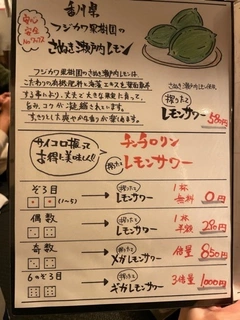 香川県
フジカワ果樹園の
さぬき瀬戸内レモン
安心
安全
フジカワ果樹園のさぬき瀬戸内レモンは、
こだわりの有機肥料と海藻エキスを
する事により、丈夫で大きな果実に育って、
旨み、コクが凝縮されてます。
すっきりとした爽やかな香りが楽しめます。
さぬき瀬戸内レモン使用
搾りたて
レモンサワー 580円
サイコロ振って
お得に美味しい!!
チンチロリン
搾りたて レモンサワー
ぞろ目 (1~5) → 搾りたて レモンサワー 1杯無料 0円
偶数 → 搾りたて レモンサワー 1杯半額 290円
奇数 → 搾りたて メガレモンサワー 倍量 850円
6のぞろ目 → 搾りたて ギガレモンサワー 3倍量 1000円